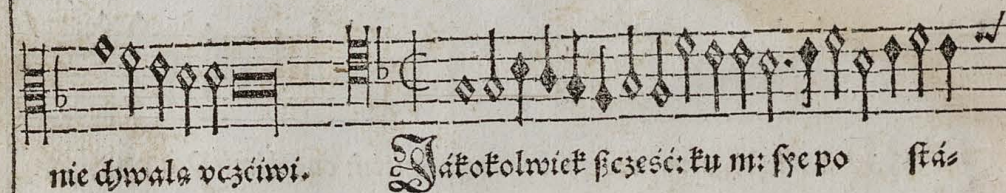 nie chwalą vcżćiwi. Jákokolwiek ſzcżęść: ku m: ſye po ſtá⸗